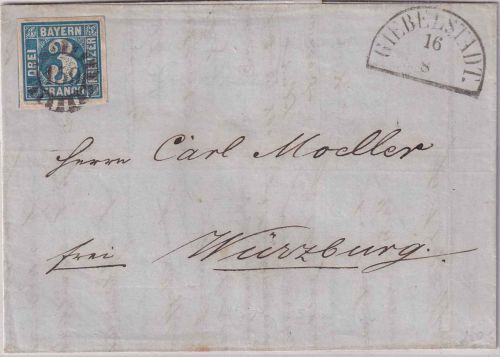 BAYERN
DREI
3
KREUZER
FRANCO
GIEBELSTADT.
16
8
Herrn Carl Moeller
frei Würzburg.